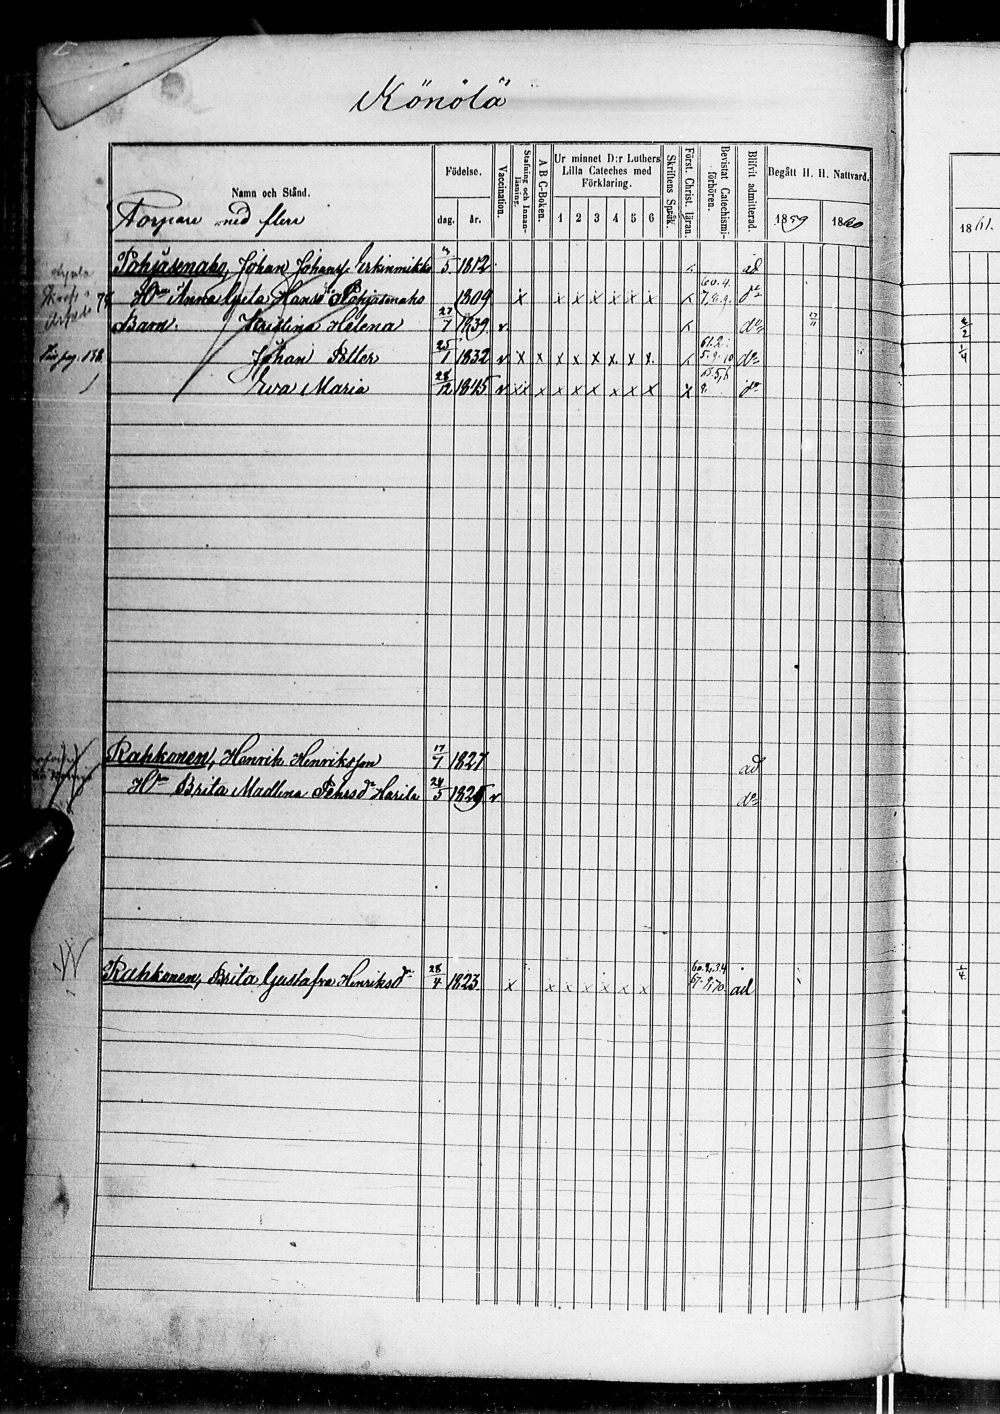 Könölä
Namn och Stånd.
Födelse.
dag. år.
Vaccination.
Stafning och Innanläsning.
A B C-Boken.
Ur minnet D:r Luthers Lilla Cateches med Förklaring.
1 2 3 4 5 6
Skriftens Språk.
Först. Christ. läran.
Bevistat Catechismiförhören.
Blifvit admitterad.
Begått H. H. Nattvard.
1859 1860
1861.
Torpare med flere
Pohjäsenaho, Johan Johans. Erkinmikko 5 1812 x ad
H:u Anna Greta Hansd:r Pohjäsenaho 1809 x x 60.4. 7.8.9. d:o
Barn. Kristina Helena 27/7 1839 v x d:o 17/11
Johan Petter 25/1 1832 v x x x x x x x x x 61.2. 5.9.10 d:o
Eva Maria 28/12 1845 v xx x x x x x x x x 8. d:o
Se pag. 138
Rahkonen, Henrik Henriksson 17/7 1827 ad
H:u Brita Madlena Pehrsd. Harila 24/5 v d:o
Rahkonen, Brita Gustafva Henriksd:r 28/4 1823 x x x x x x x ad 1/4